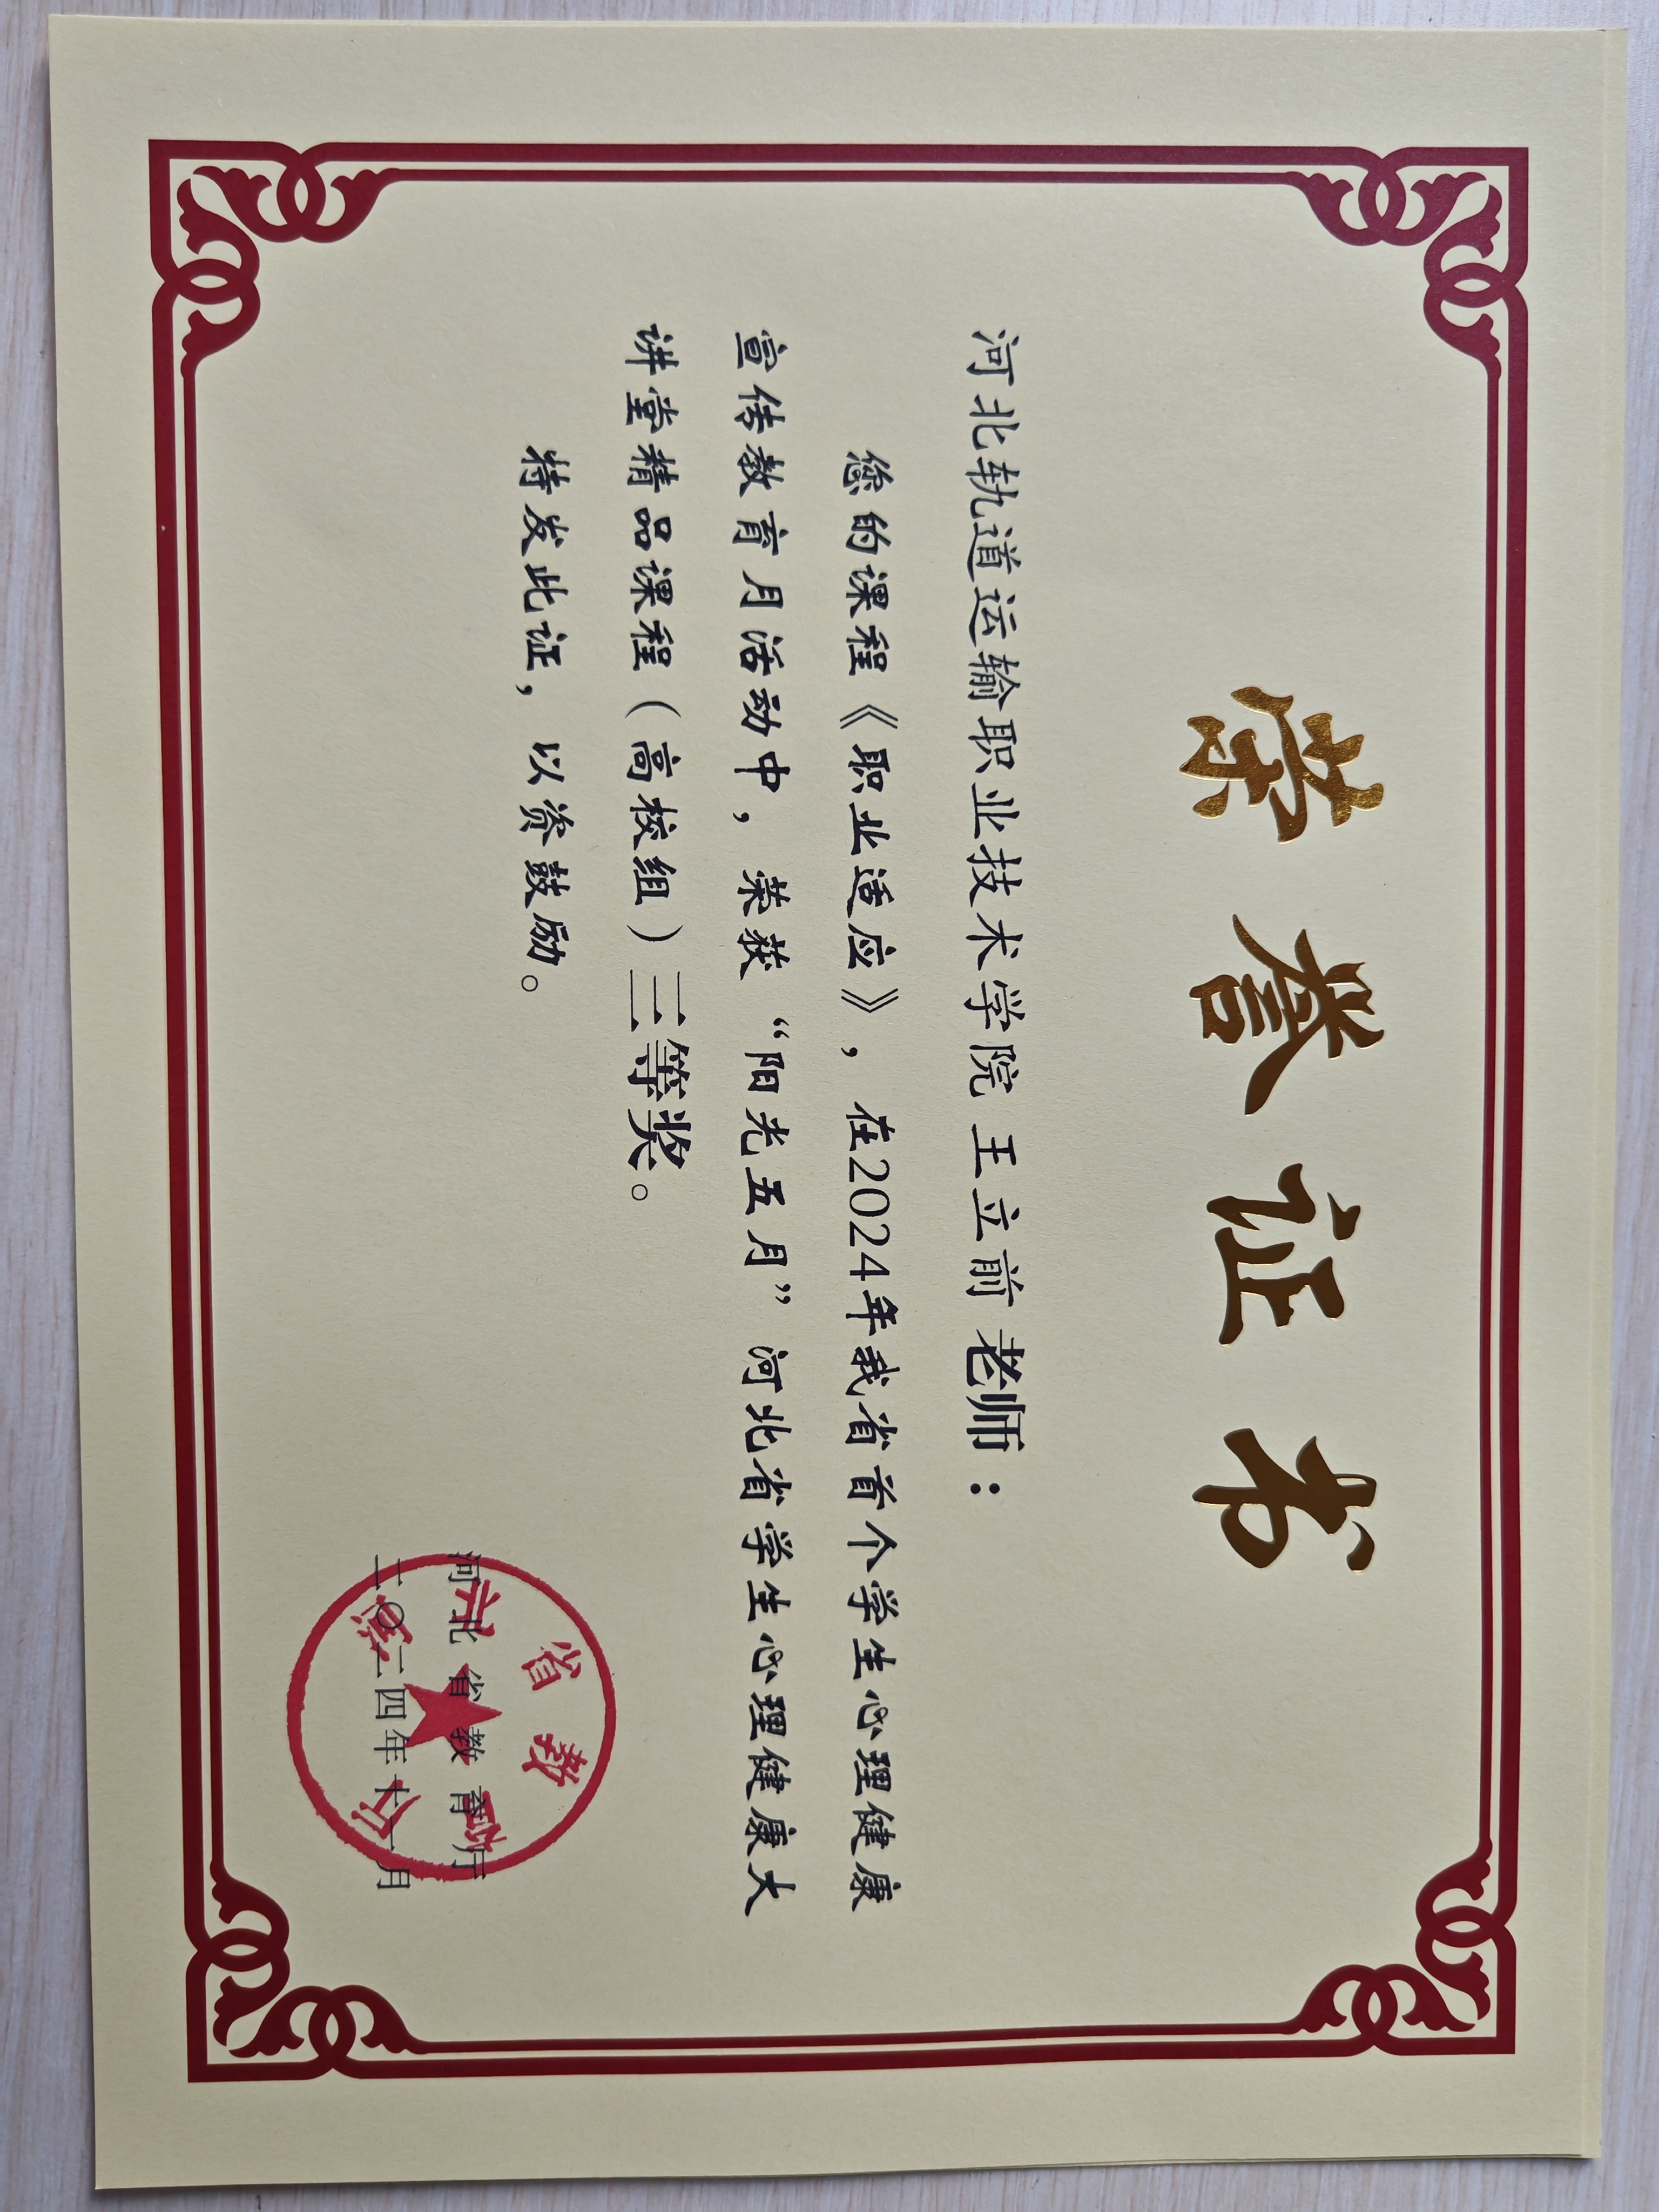 荣誉证书
河北轨道运输职业技术学院 王立前 老师：
您的课程《职业适应》，在2024年我省首个学生心理健康
宣传教育月活动中，荣获“阳光五月”河北省学生心理健康大
讲堂精品课程（高校组）三等奖。
特发此证，以资鼓励。
河北省教育厅
二〇二四年十一月